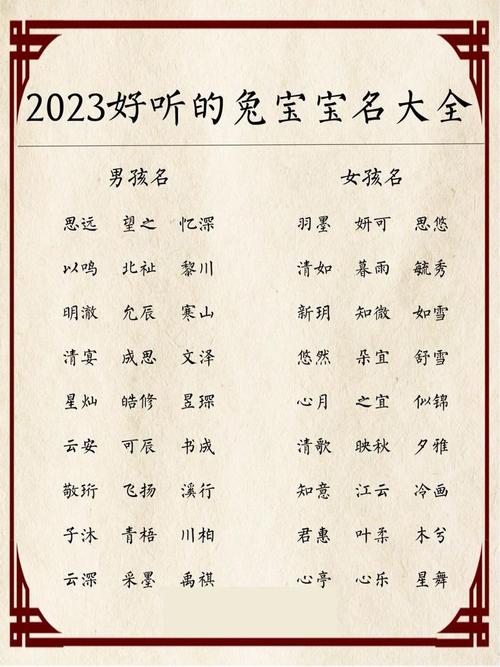 2023好听的兔宝宝名大全
男孩名 女孩名
思远 望之 忆深 羽墨 妍可 思悠
以鸣 北祉 黎川 清如 暮雨 毓秀
明澈 允辰 寒山 新玥 知微 如雪
清宴 成思 文泽 悠然 朵宜 舒雪
星灿 皓修 昱琛 心月 之宜 似锦
云安 可辰 书成 清歌 映秋 夕雅
敬珩 飞扬 溪行 知意 江云 冷画
子沐 青梧 川柏 君惠 叶柔 木兮
云深 采墨 禹祺 心亭 心乐 星舞